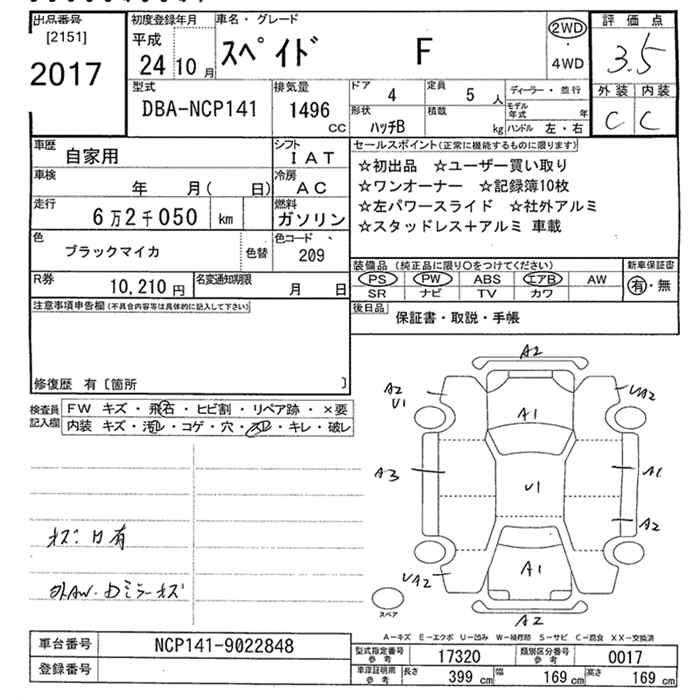 出品番号 初度登録年月 車名・グレード 2WD ・ 4WD 評価点
[2151] 平成 24 10月 スペイド F 3.5
2017
外装 内装
C C
型式 排気量 ドア 4 定員 5人 ディーラー・並行
DBA-NCP141 1496 CC 形状 ハッチB 積載 kg モデル年式 年
ハンドル 左・右
車歴 自家用 シフト IAT
車検 年 月( 日) 冷房 AC
走行 6万2千050 km 燃料 ガソリン
色 ブラックマイカ 色替 色コード 209
R券 10,210円 名変通知期限 月 日
セールスポイント(正常に機能するものに限ります)
☆初出品 ☆ユーザー買い取り
☆ワンオーナー ☆記録簿10枚
☆左パワースライド ☆社外アルミ
☆スタッドレス+アルミ 車載
装備品(純正品に限り○をつけてください) 新車保証書
PS PW ABS エアB AW 有・無
SR ナビ TV カワ
後日品 保証書・取説・手帳
注意事項申告欄(不具合内容等は具体的に記入して下さい)
修復歴 有 [箇所 ]
検査員記入欄 FW キズ・飛石・ヒビ割・リペア跡・×要
内装 キズ・汚レ・コゲ・穴・スレ・キレ・破レ
A2
A2 U1 UA2
A1
A3 U1 A1
A2
UA2 A1
A2
スペア
A-キズ E-エクボ U-凹み W-補修跡 S-サビ C-腐食 XX-交換済
車台番号 NCP141-9022848
登録番号
型式指定番号 参考 17320 類別区分番号 参考 0017
車庫証明用 参考 長さ 399 cm 幅 169 cm 高さ 169 cm